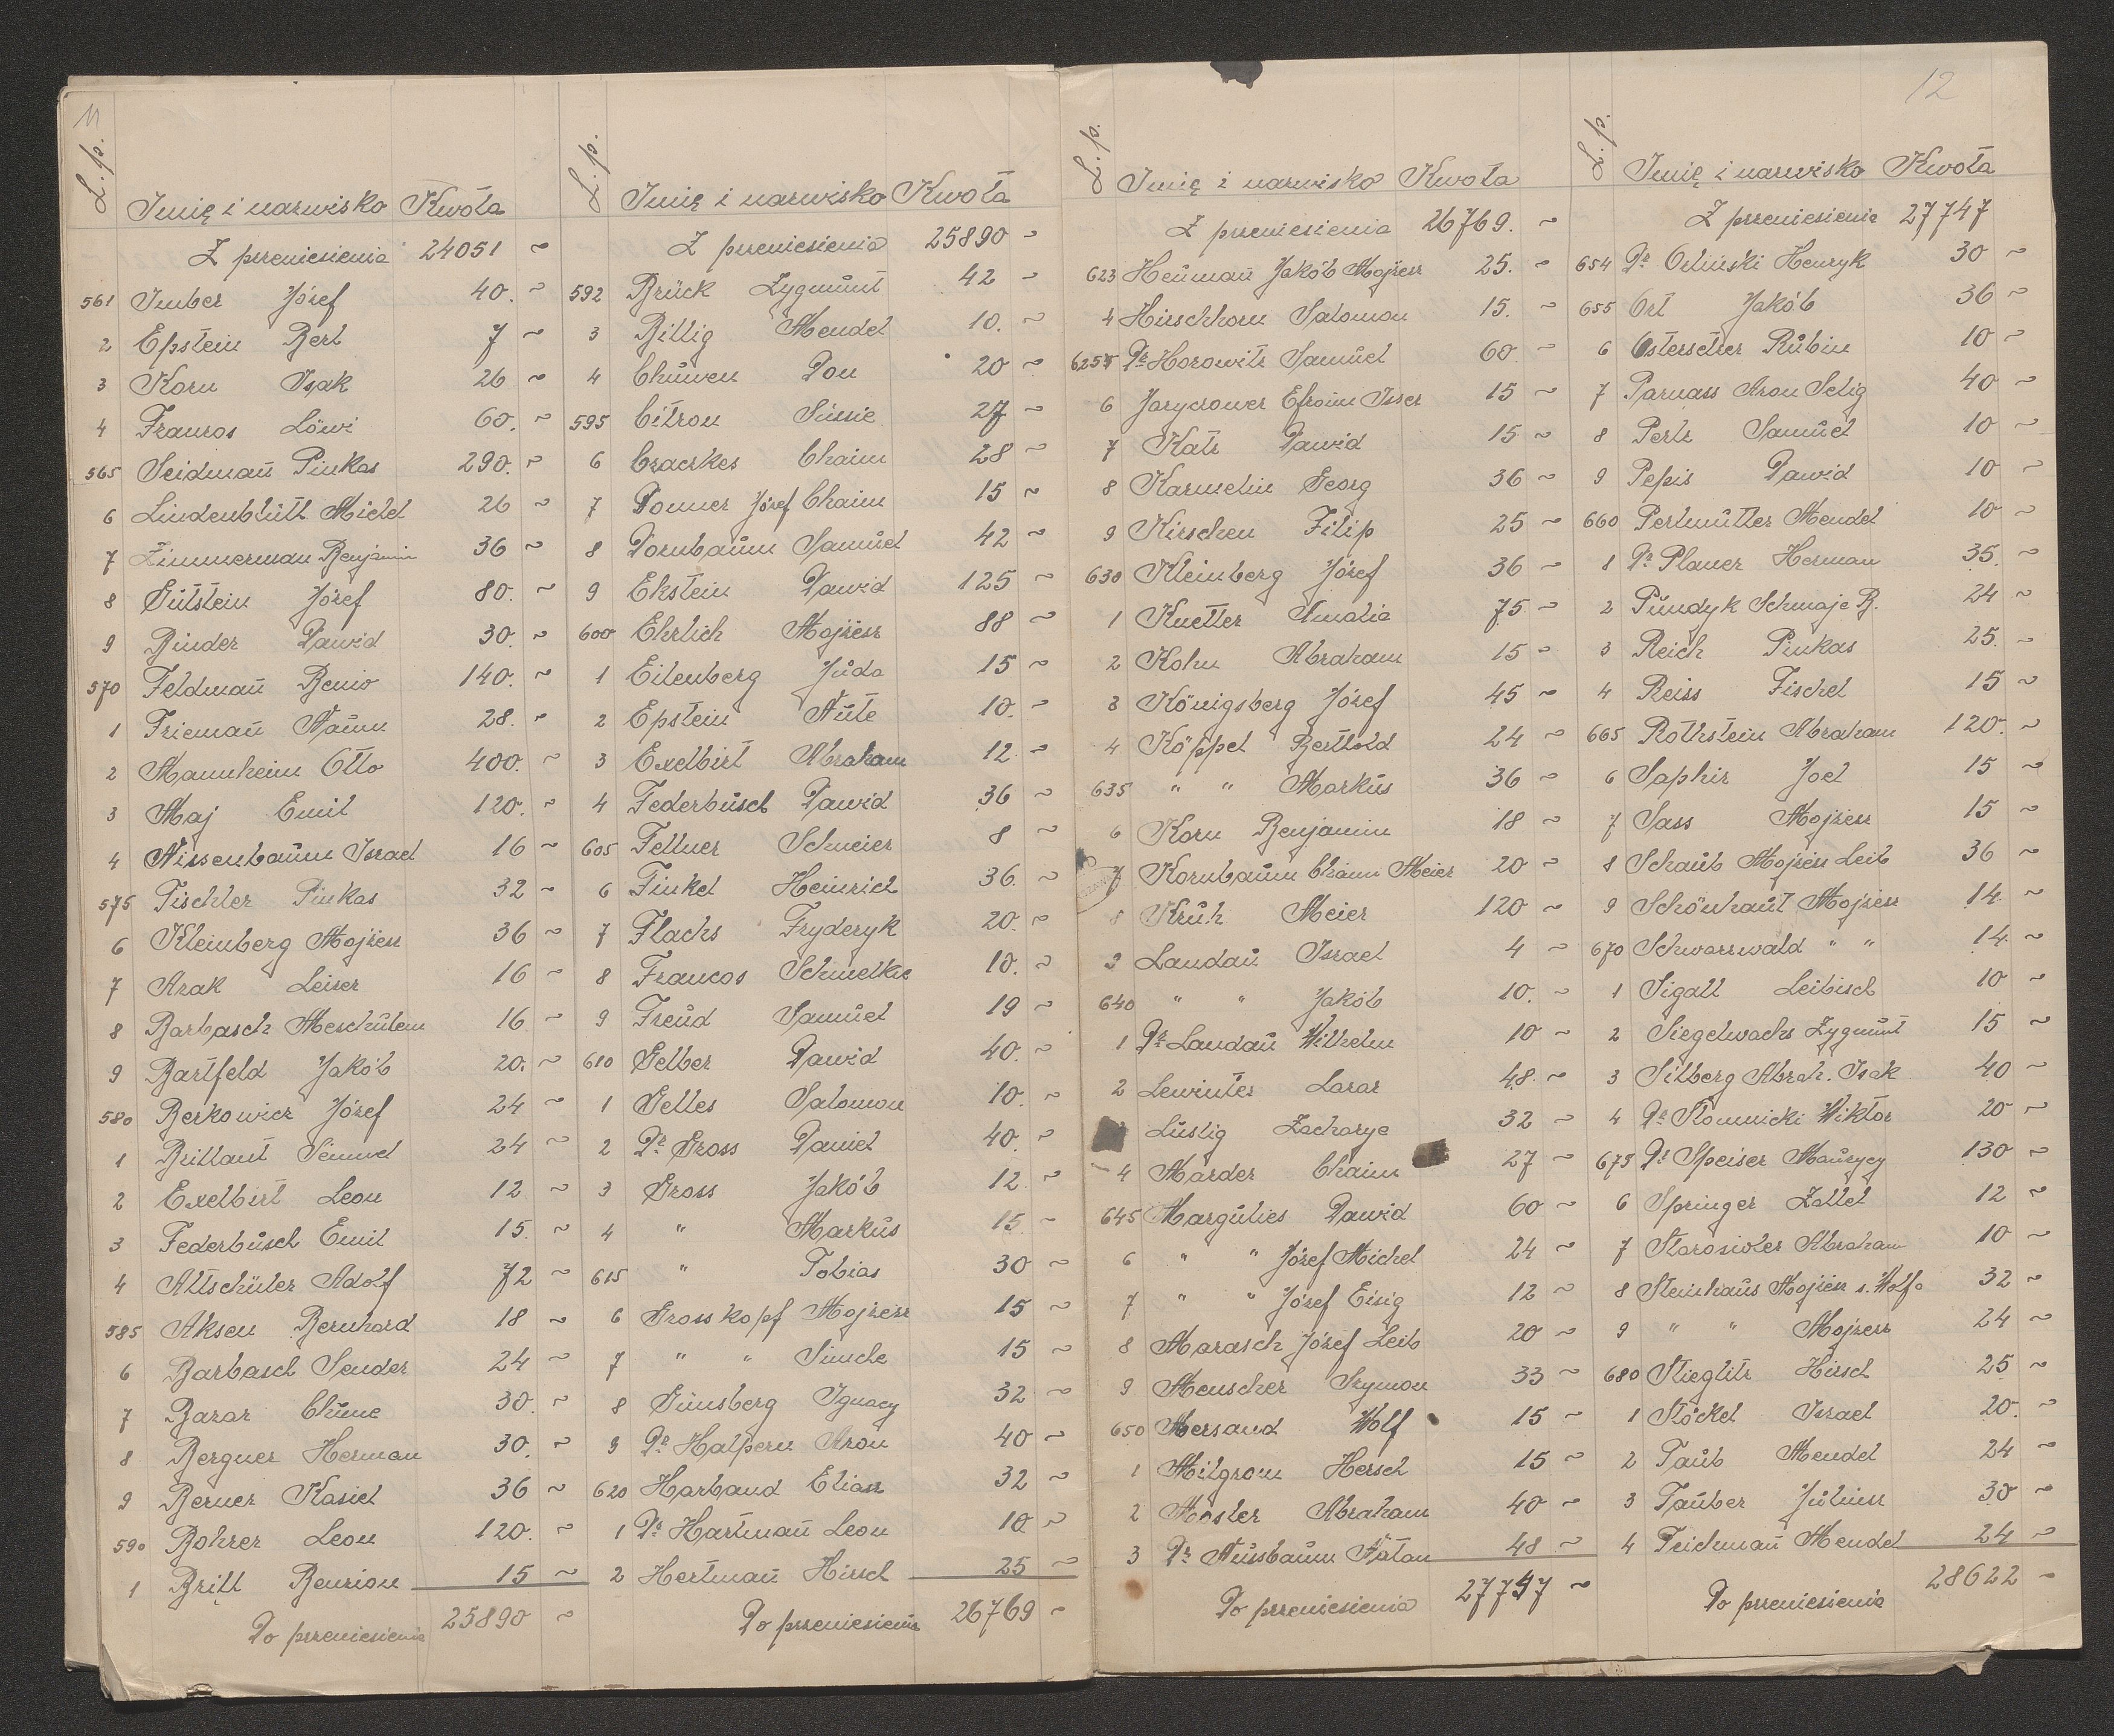 11
L.p. Imię i nazwisko Kwota
Z przeniesienia 24051 ~
561 Imber Józef 40. ~
2 Epstein Berl 7 ~
3 Korn Izak 26 ~
4 Franzos Löwi 60. ~
565 Seidmaň Pinkas 290. ~
6 Lindenblütt Michel 26 ~
7 Zimmerman Benjamin 36 ~
8 Gutstein Józef 80. ~
9 Binder Dawid 30. ~
570 Feldmaň Benio 140. ~
1 Friemaň Naum 28. ~
2 Mannheim Otto 400. ~
3 Maj Emil 120. ~
4 Nissenbaum Israel 16 ~
575 Tischler Pinkas 32 ~
6 Kleinberg Mojżesz 36 ~
7 Arak Leiser 16 ~
8 Barbasch Meschulem 16 ~
9 Bartfeld Jakób 20. ~
580 Berkowicz Józef 24 ~
1 Brillant Semuel 24 ~
2 Exelbirt Leon 12 ~
3 Federbusch Emil 15. ~
4 Altschüler Adolf 72 ~
585 Aksen Bernhard 18 ~
6 Barbasch Sender 24 ~
7 Barar Chune 30. ~
8 Bergner Herman 30. ~
9 Berner Kasiel 36 ~
590 Bohrer Leon 120. ~
1 Britt Benzion 15 ~
Do przeniesienia 25890 ~
L.p. Imię i nazwisko Kwota
Z przeniesienia 25890 ~
592 Brück Zygmunt 42 ~
3 Billig Mendel 10. ~
4 Chuwen Don 20 ~
595 Citron Süssie 27 ~
6 Czaczkes Chaim 28 ~
7 Donner Józef Chaim 15 ~
8 Dornbaum Samuel 42 ~
9 Ekstein Dawid 125 ~
600 Ehrlich Mojżesz 88 ~
1 Eilenberg Juda 15 ~
2 Epstein Nute 10. ~
3 Exelbirt Abraham 12. ~
4 Federbusch Dawid 36 ~
605 Fellner Schneier 8 ~
6 Finkel Heinrich 36. ~
7 Flachs Fryderyk 20. ~
8 Franzos Schmelkie 10. ~
9 Freud Samuel 19 ~
610 Gelber Dawid 40. ~
1 Gelles Salomon 10. ~
2 Dr Gross Daniel 40. ~
3 Gross Jakób 12. ~
4 " Markus 15 ~
615 " Tobias 30 ~
6 Grosskopf Mojżesz 15 ~
7 " " Simche 15 ~
8 Günsberg Ignacy 32 ~
9 Dr Halpern Aron 40 ~
620 Harband Eliasz 32 ~
1 Dr Hartmaň Leon 10. ~
2 Hertmaň Hirsch 25 ~
Do przeniesienia 26769 ~
L.p. Imię i nazwisko Kwota
Z przeniesienia 26769. ~
623 Heumaň Jakób Mojżesz 25. ~
4 Hirschhorn Salomon 15. ~
625 Dr Horowitz Samuel 60 ~
6 Jaryczower Efroim Isser 15 ~
7 Katz Dawid 15 ~
8 Karmelin Georg 36 ~
9 Kirschen Filip 25 ~
630 Kleinberg Józef 36 ~
1 Knetter Amalia 75 ~
2 Kohn Abraham 15 ~
3 Königsberg Józef 45 ~
4 Köppel Berthold 24 ~
635 " " Markus 36 ~
6 Korn Benjamin 18 ~
7 Kornbaum Chaim Meier 20 ~
8 Kruh Meier 120 ~
9 Landau Israel 4 ~
640 " " Jakób 10. ~
1 Dr Landau Wilhelm 10 ~
2 Lewinter Lazar 48. ~
Lustig Zacharye 32 ~
4 Marder Chaim 27 ~
645 Margulies Dawid 60 ~
6 " " Józef Michel 24 ~
7 " " Józef Eisig 12 ~
8 Marasch Józef Leib 20 ~
9 Menscher Szymon 33 ~
650 Mersand Wolf 15 ~
1 Milgrom Hersch 15 ~
2 Moster Abraham 40 ~
3 Dr Nussbaum Natan 48 ~
Do przeniesienia 27747 ~
12
L.p. Imię i nazwisko Kwota
Z przeniesienia 27747
654 Dr Orliński Henryk 30 ~
655 Ort Jakób 36 ~
6 Ostersetzer Rubin 10 ~
7 Parnass Aron Selig 40 ~
8 Perlz Samuel 10 ~
9 Pepis Dawid 10 ~
660 Perlmutter Mendel 10 ~
1 Dr Planer Herman 35. ~
2 Pundyk Schmaje B. 24 ~
3 Reich Pinkas 25. ~
4 Reiss Fischel 15 ~
665 Rothstein Abraham 120. ~
6 Saphir Joel 15 ~
7 Sass Mojżesz 15 ~
8 Schaub Mojżesz Leib 36 ~
9 Schönhaut Mojżesz 14. ~
670 Schwarzwald " " 14. ~
1 Sigall Leibisch 10 ~
2 Siegelwachs Zygmunt 15 ~
3 Silberg Abrah. Izak 40 ~
4 Dr Słomnicki Wiktor 20 ~
675 Dr Speiser Maurycy 130 ~
6 Springer Zallel 12 ~
7 Starosioler Abraham 10 ~
8 Steinhaus Mojżesz s. Wolfa 32 ~
9 " " Mojżesz 24 ~
680 Stieglitz Hirsch 25 ~
1 Stöckel Israel 20. ~
2 Taub Mendel 24 ~
3 Tauber Juliusz 30 ~
4 Teichmaň Mendel 24 ~
Do przeniesienia 28622 ~